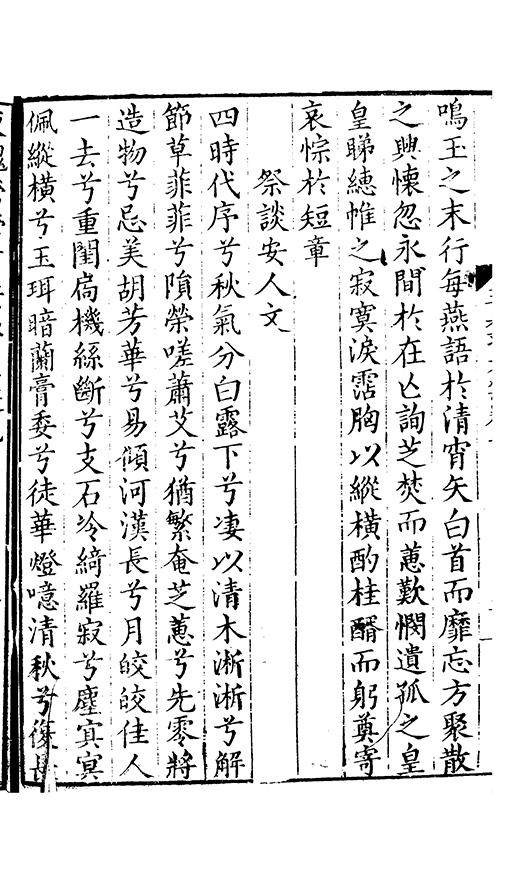 鳴玉之末行每燕語於清宵矢白首而靡忘方聚散
之興懷忽永間於在亾詢芝焚而蕙歎憫遺孤之皇
皇睇繐帷之寂寞淚霑胸以縱橫酌桂醑而躬奠寄
哀悰於短章
祭談安人文
四時代序兮秋氣分白露下兮凄以清木淅淅兮解
節草菲菲兮隕榮嗟蕭艾兮猶繁奄芝蕙兮先零將
造物兮忌美胡芳華兮易傾河漢長兮月皎皎佳人
一去兮重閨扃機絲斷兮支石冷綺羅寂兮塵寘冥
佩縱橫兮玉珥暗蘭膏委兮徒華燈噫清秋兮復